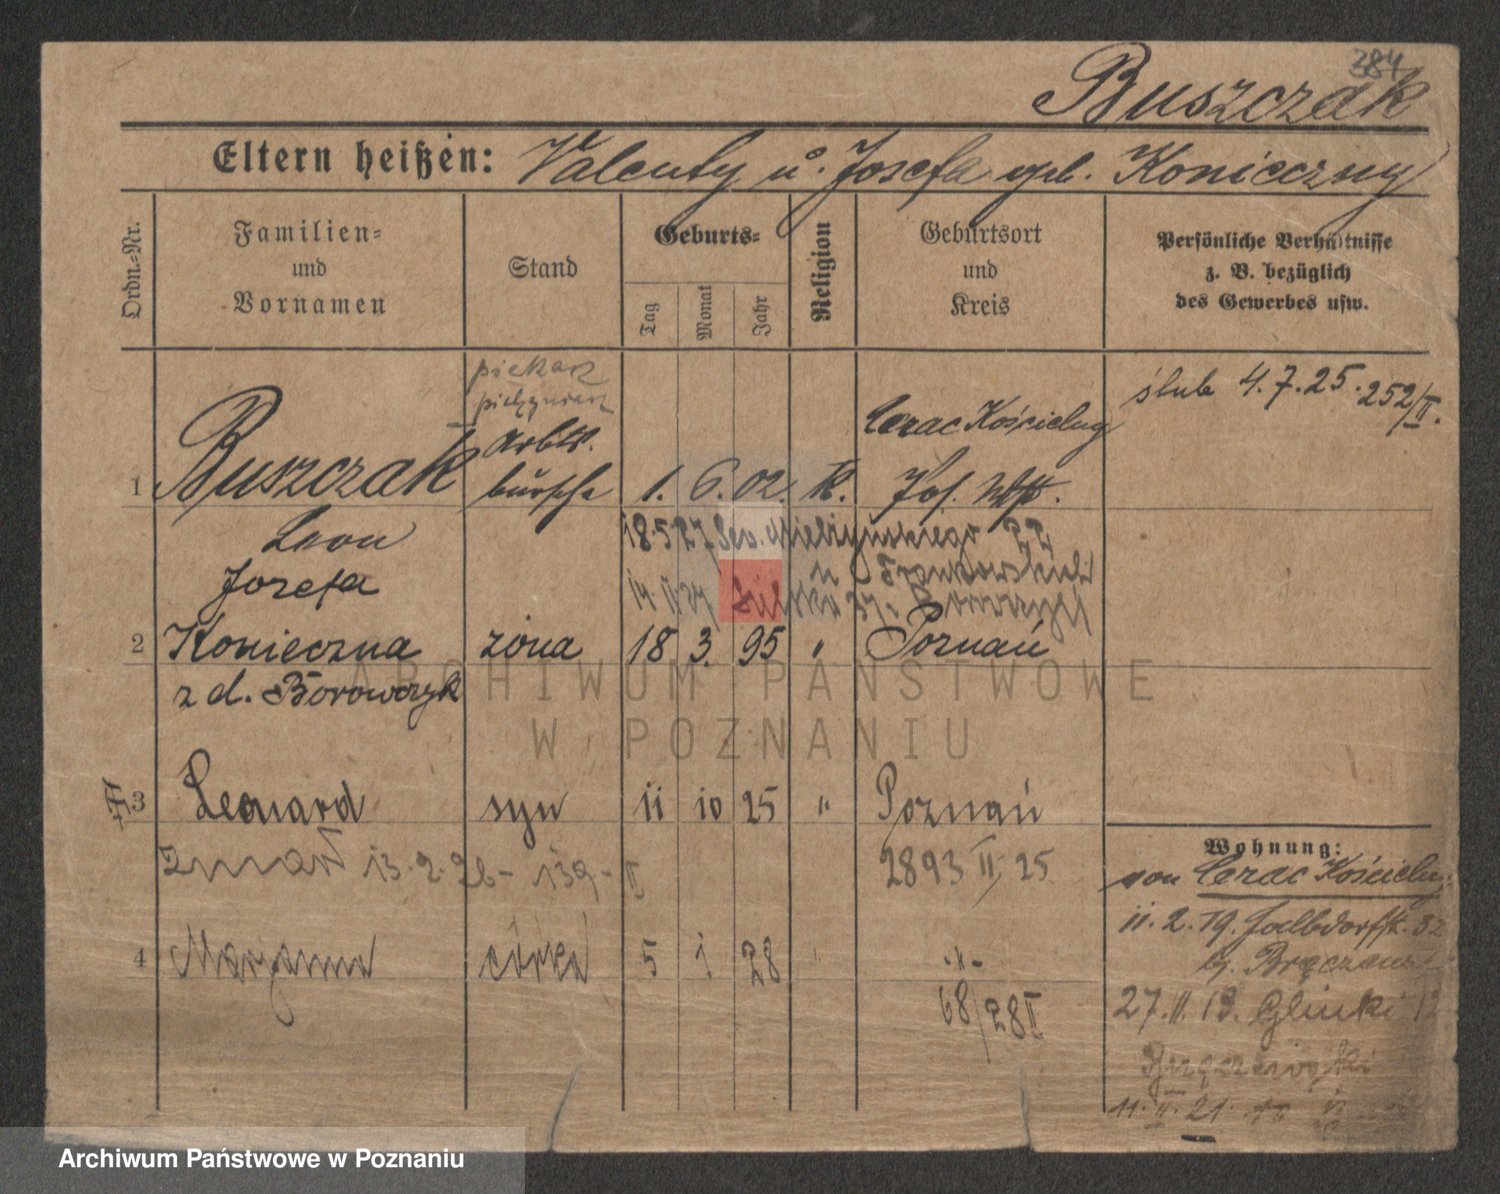 384
Buszczak
Eltern heißen: Valenty u. Josefa geb. Konieczny
Ordn.-Nr.
Familien-
und
Vornamen
Stand
Geburts-
Tag
Monat
Jahr
Religion
Geburtsort
und
Kreis
Persönliche Verhältnisse
z. B. bezüglich
des Gewerbes usw.
piekarz
ślub 4.7.25. 252/II.
Arbts.
Cerac Kościelny
1 Buszczak bursche 1. 6. 02. k.
Leon
18.5.27. Sew. Mielżyńskiego 22
Józefa
u Frankowskich
2 Konieczna żona 18 3. 95 " Poznań
z d. Borowczyk
3 Leonard syn 11 10 25 " Poznań
zmarł 13.2.26 - 139 - II
2893 II/25
4 Marjanna córka 5 1 28 " -"-
68/28 II
Wohnung:
von Cerac Kościelny
11.2.19.
27.11.19. Glinki
11.II.21.
ARCHIWUM PAŃSTWOWE
W POZNANIU
Archiwum Państwowe w Poznaniu